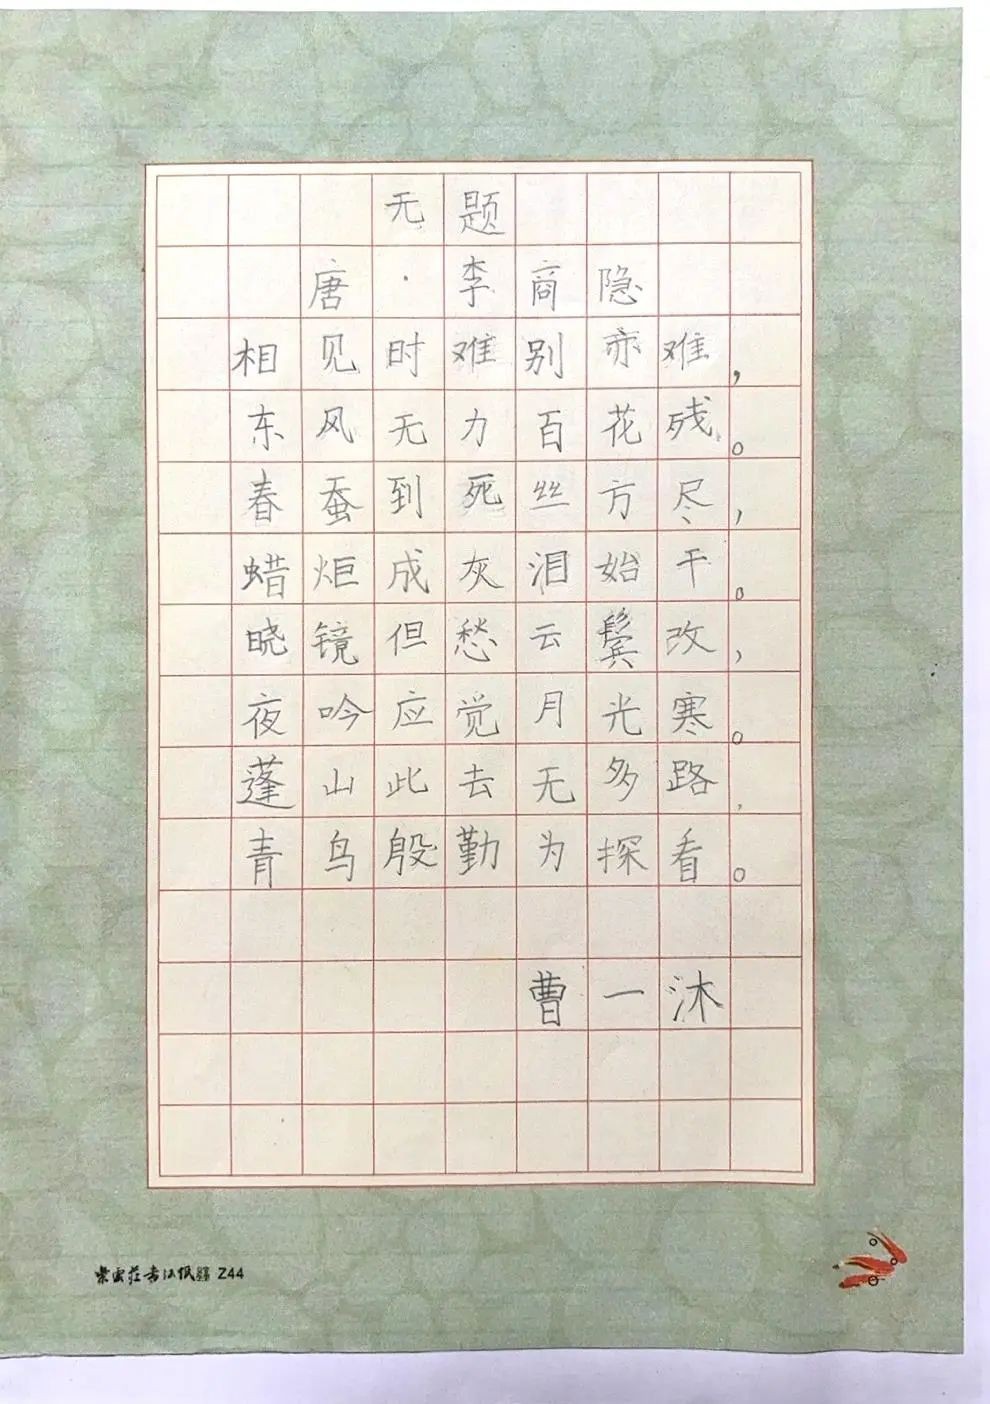 无题
唐·李商隐
相见时难别亦难，
东风无力百花残。
春蚕到死丝方尽，
蜡炬成灰泪始干。
晓镜但愁云鬓改，
夜吟应觉月光寒。
蓬山此去无多路，
青鸟殷勤为探看。
曹一沐
Z44